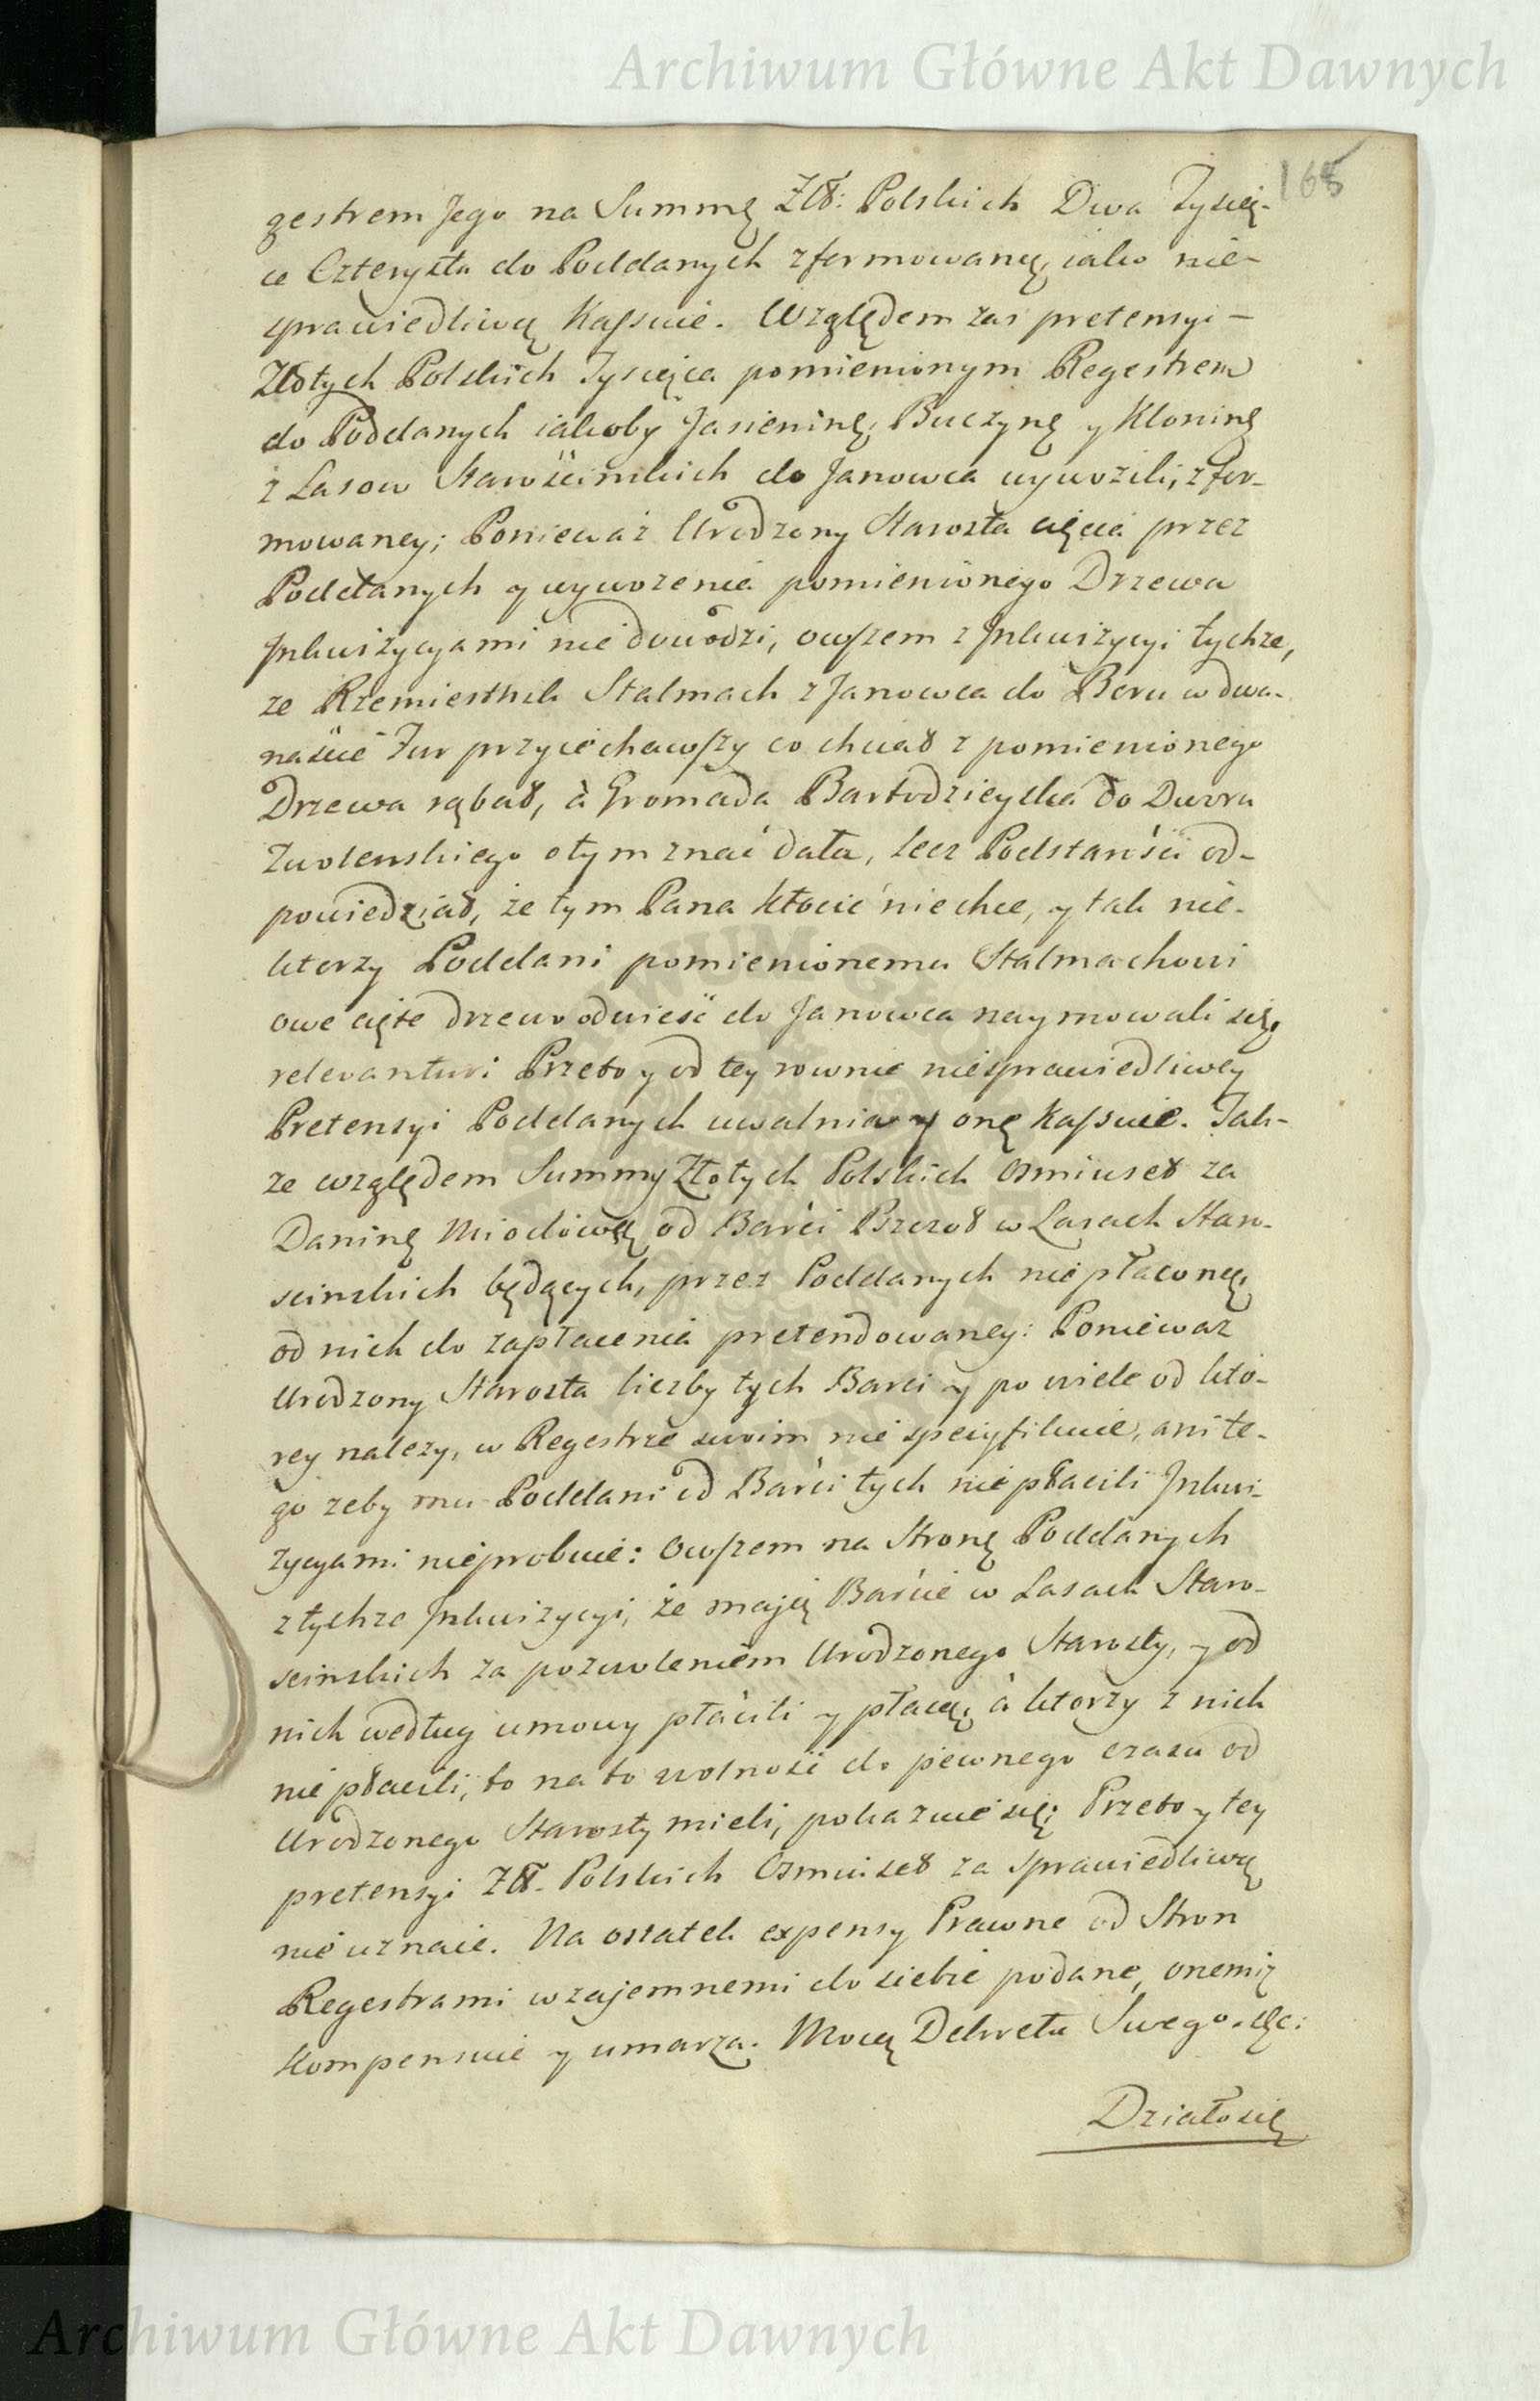 Archiwum Główne Akt Dawnych
165
gestrem Jego na Summę Zł: Polskich Dwa Tysią-
ce Czterysta do Poddanych zformowaną, iako nie-
sprawiedliwą Kassuie. Względem zas pretensyi –
Złotych Polskich Tysiąca pomienionym Regestrem
do Poddanych iakoby Jasieninę, Buczynę y Kloninę
z Lasow Starościnskich do Janowca wywozili, zfor-
mowaney; Ponieważ Urodzony Starosta cięcia przez
Poddanych y wywozenia pomienionego Drzewa
Inkwizycyami nie dowodzi, owszem z Inkwizycyi tychze,
ze Rzemieslnik Stalmach z Janowca do Boru w dwa-
naście Fur przyiechawszy co chciał z pomienionego
Drzewa rąbał, à Gromada Bartodzieyska do Dworu
Zwolenskiego o tym znać dała, lecz Podstarości od-
powiedział, że tym Pana kłocić niechce, y tak nie-
ktorzy Poddani pomienionemu Stalmachowi
owe cięte drzewo odwieść do Janowca naymowali się,
relevantur: Przeto y od tey rownie niesprawiedliwey
Pretensyi Poddanych uwalnia y onę Kassuie. Tak-
ze względem Summy Złotych Polskich Osmiuset za
Daninę Miodową od Barci Pszczoł w Lasach Staro-
scinskich będących, przez Poddanych nie płaconą,
od nich do zapłacenia pretendowaney: Poniewaz
Urodzony Starosta liczby tych Barci y po wiele od kto-
rey nalezy, w Regestrze swoim nie specyfikuie, ani te-
go zeby mu Poddani od Barci tych nie płacili Inkwi-
zycyami nieprobuie: Owszem na Stronę Poddanych
z tychze Inkwizycyi, że maią Barcie w Lasach Staro-
scinskich za pozwoleniem Urodzonego Starosty, y od
nich według umowy płacili y płacą, à ktorzy z nich
nie płacili, to na to wolność do pewnego czasu od
Urodzonego Starosty mieli, pokazuie się; Przeto y tey
pretensyi Zł. Polskich Osmiuset za sprawiedliwą
nie uznaie. Na ostatek expensy Prawne od Stron
Regestrami wzajemnemi do siebie podane, onemiż
Kompensuie y umarza. Mocą Dekretu Swego. &c:
Działo się
Archiwum Główne Akt Dawnych